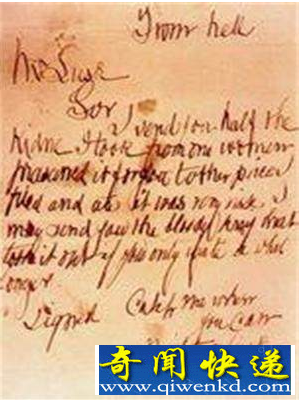 From hell
Mr Lusk
Sor
I send you half the
Kidne I took from one women
prasarved it for you tother piece I
fried and ate it was very nise. I
may send you the bloody knif that
took it out if you only wate a whil
longer
signed Catch me when
you can
奇闻快递
www.qiwenkd.com